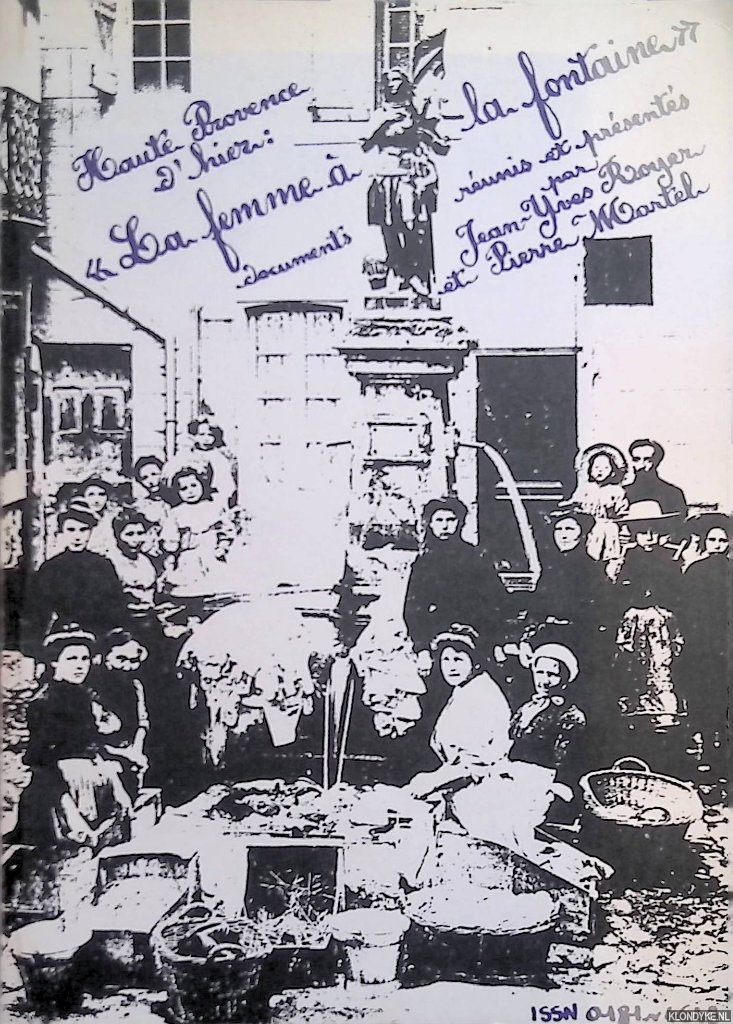 Haute Provence
d'hier:
« La femme à la fontaine »
documents réunis et présentés
par
Jean-Yves Royer
et Pierre Martel
ISSN 0181
KLONDYKE.NL